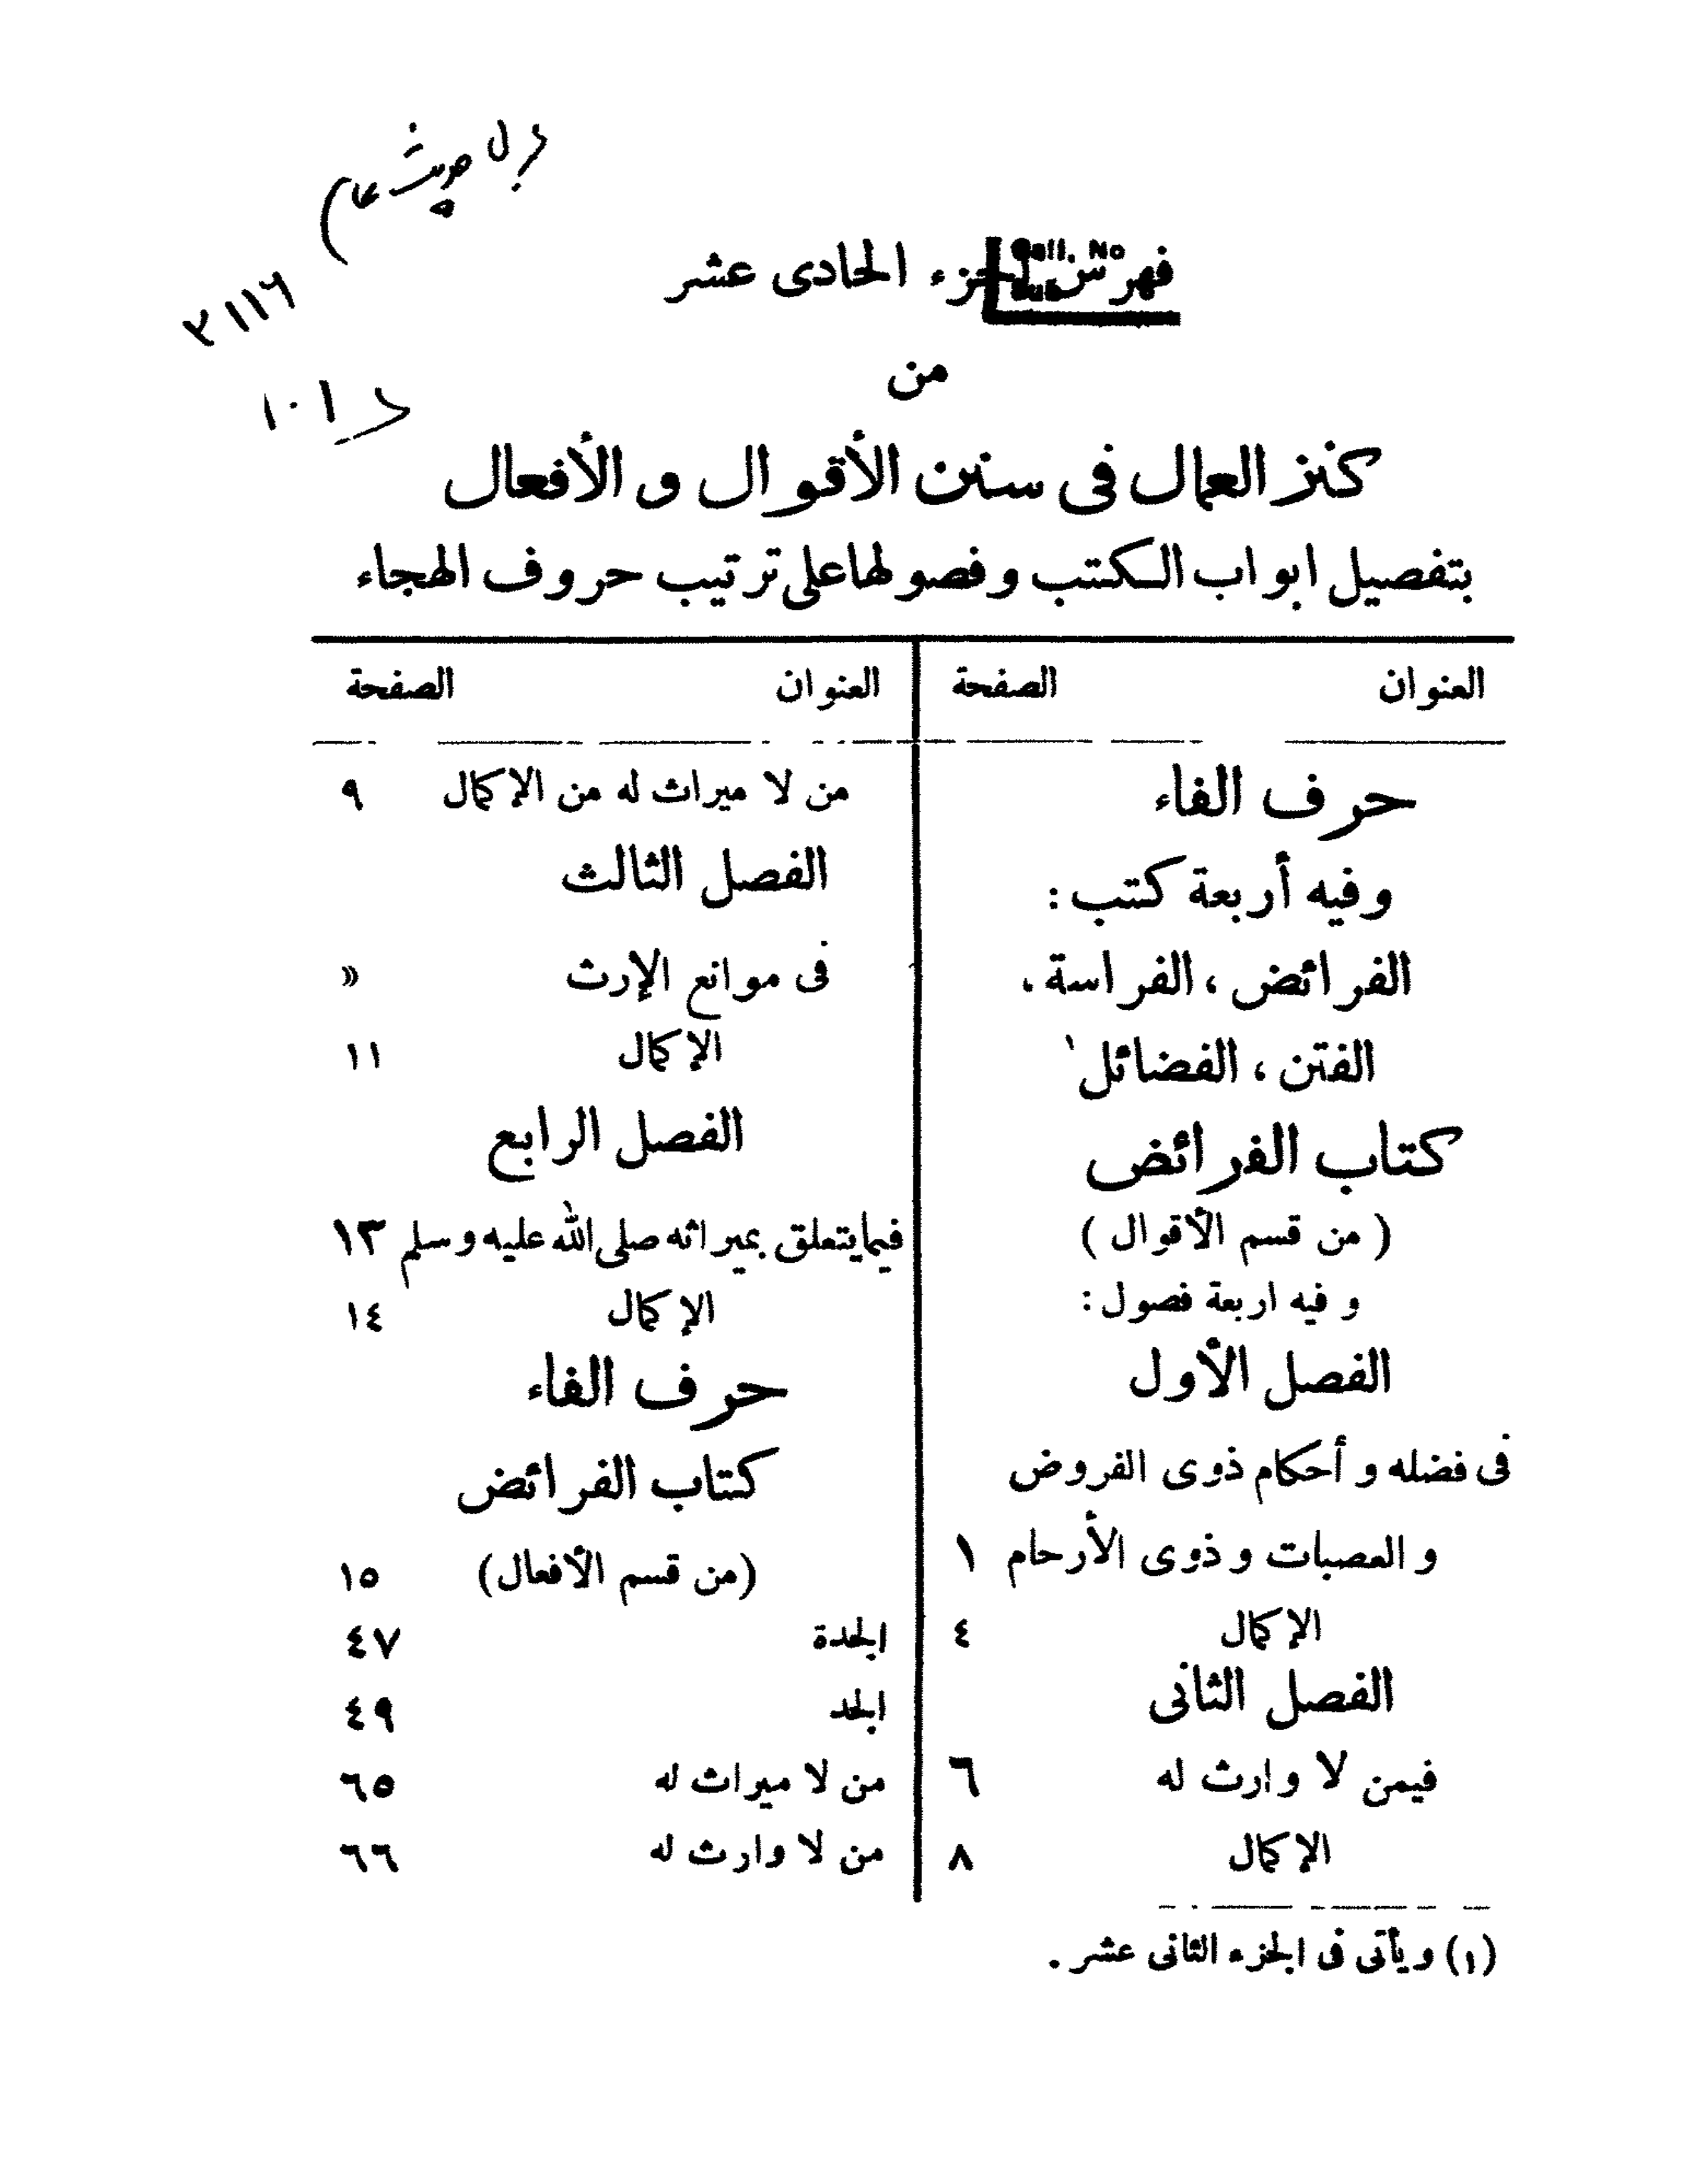 ٢١١٦
١٠١
Call. No
Sub
فهرس الجزء الحادى عشر
من
كنز العمال فى سنن الأقوال و الأفعال
بتفصيل ابواب الكتب و فصولها على ترتيب حروف الهجاء
العنوان الصفحة
حرف الفاء
و فيه أربعة كتب :
الفرائض ، الفراسة ،
الفتن ، الفضائل ١
كتاب الفرائض
( من قسم الأقوال )
و فيه اربعة فصول :
الفصل الأول
فى فضله و أحكام ذوى الفروض
و العصبات و ذوى الأرحام ١
الإكمال ٤
الفصل الثانى
فيمن لا وارث له ٦
الإكمال ٨
العنوان الصفحة
من لا ميراث له من الإكمال ٩
الفصل الثالث
فى موانع الإرث »
الإكمال ١١
الفصل الرابع
فيما يتعلق بميراثه صلى الله عليه و سلم ١٣
الإكمال ١٤
حرف الفاء
كتاب الفرائض
(من قسم الأفعال) ١٥
الجدة ٤٧
الجد ٤٩
من لا ميراث له ٦٥
من لا وارث له ٦٦
(١) و يأتى فى الجزء الثانى عشر .